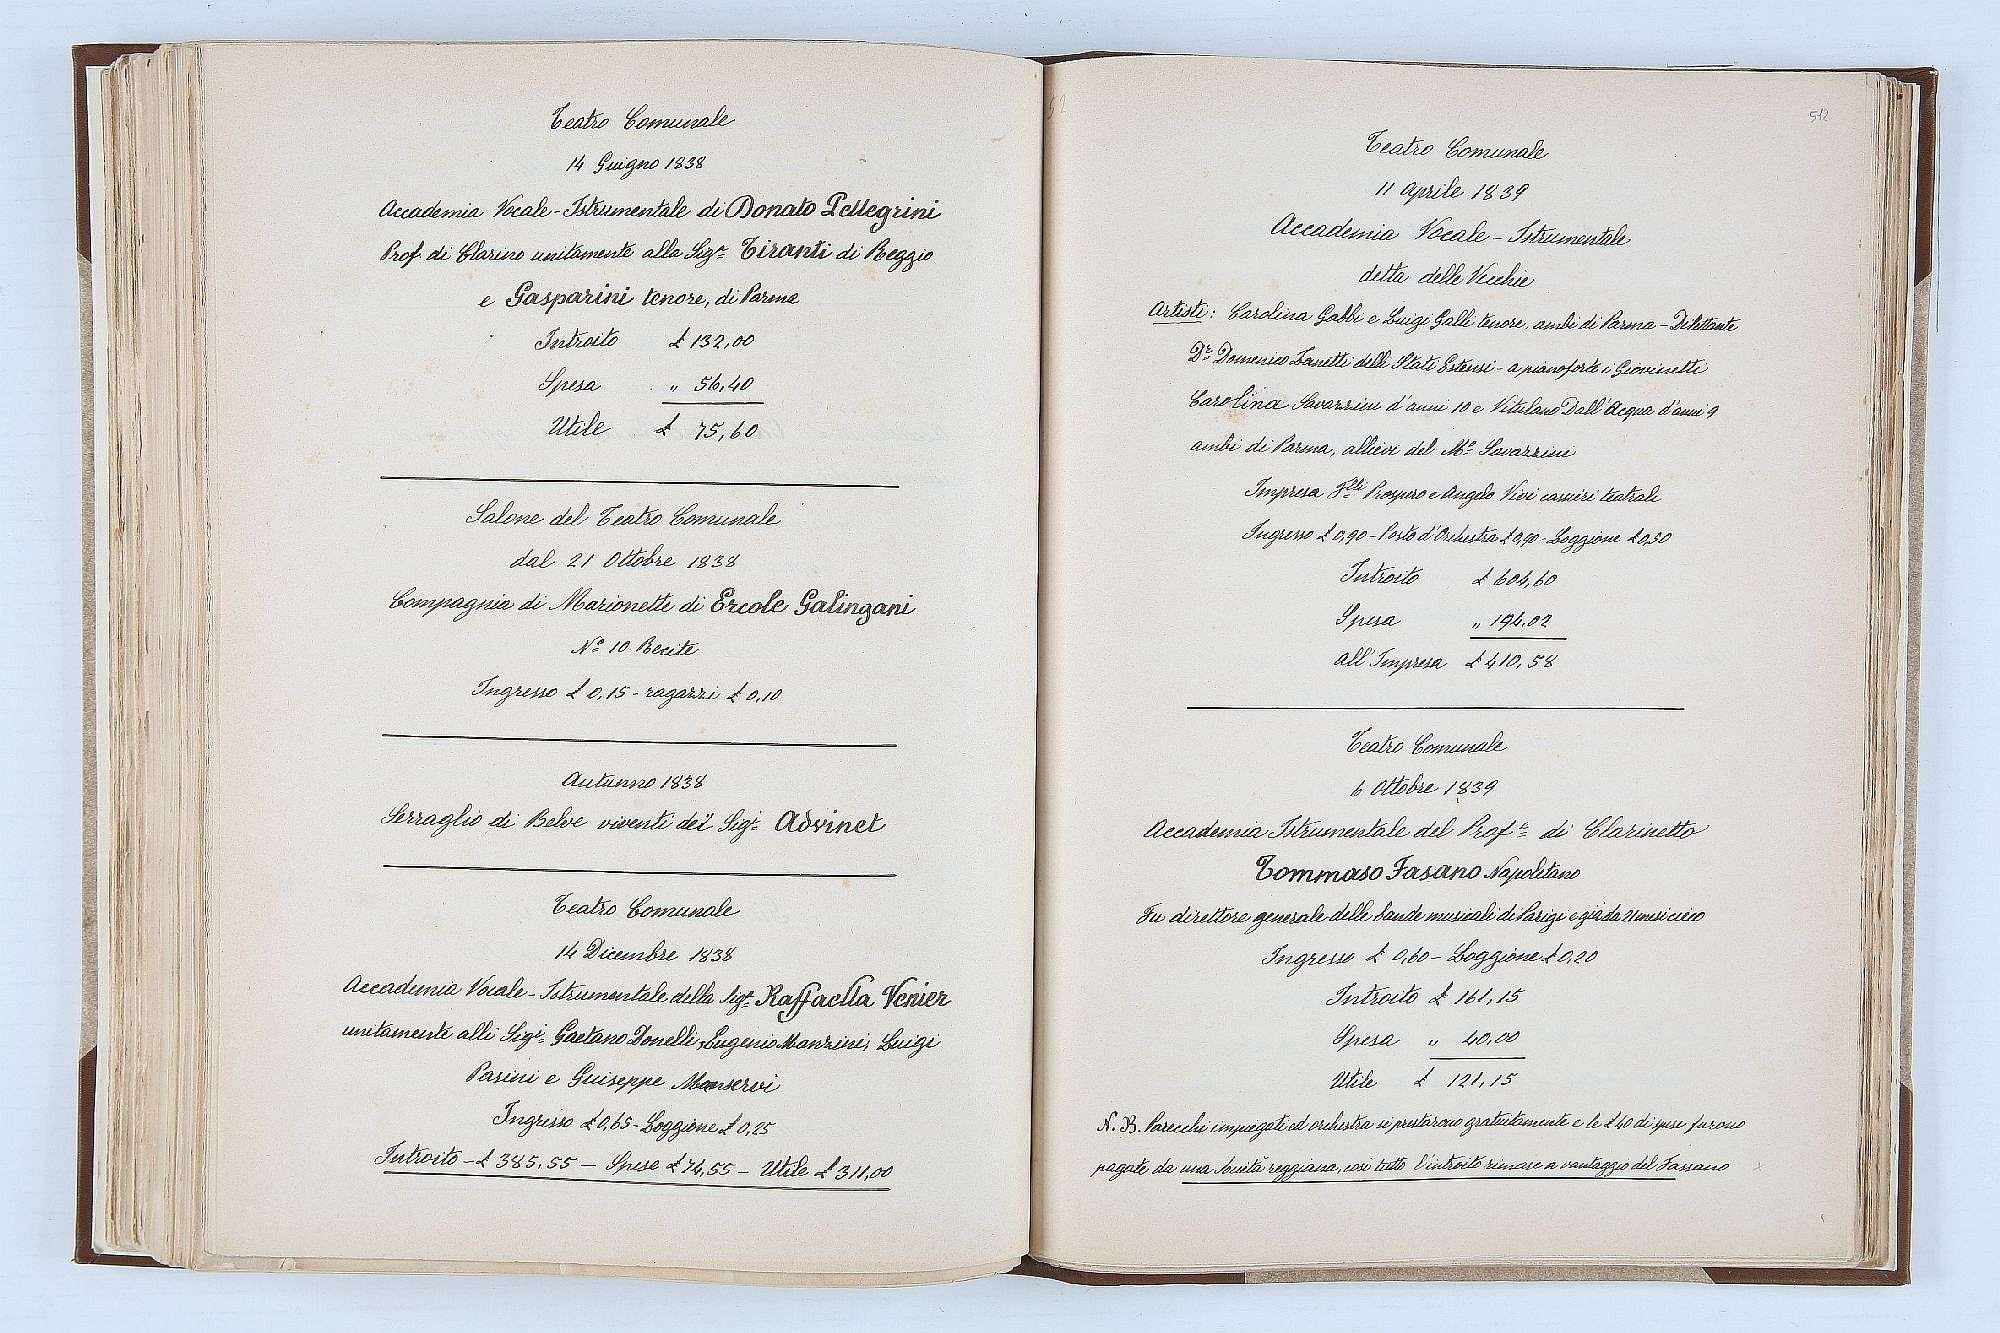 Teatro Comunale
14 Guigno 1838
Accademia Vocale - Istrumentale di Donato Pellegrini
Prof. di Clarino unitamente alla Sigra Tiranti di Reggio
e Gasparini tenore, di Parma
Introito £ 132,00
Spesa „ 56,40
Utile £ 75,60
Salone del Teatro Comunale
dal 21 Ottobre 1838
Compagnia di Marionette di Ercole Galingani
No 10 Recite
Ingresso £ 0,15 - ragazzi £ 0,10
Autunno 1838
Serraglio di Belve viventi dei Sigi Advinet
Teatro Comunale
14 Dicembre 1838
Accademia Vocale - Istrumentale della Siga Raffaella Venier
unitamente alli Sigi Gaetano Donelli, Eugenio Manzini, Luigi
Pasini e Guiseppe Manservi
Ingresso £ 0,65 - Loggione £ 0,25
Introito - £ 385,55 - Spese £ 74,55 - Utile £ 311,00
52
512
Teatro Comunale
11 Aprile 1839
Accademia Vocale - Istrumentale
detta delle Vecchie
Artisti: Carolina Gabbi e Luigi Galli tenore, ambi di Parma - Dilettante
Dr Domenico Zanetti delli Stati Estensi - a pianoforte i Giovinetti
Carolina Savazzini d'anni 10 e Vitulano Dall'Acqua d'anni 9
ambi di Parma, allievi del Mo Savazzini
Impresa Flli Prospero e Angelo Vivi teatrali
Ingresso £ 0,90 - Posto d'Orchestra £ 0,90 - Loggione £ 0,50
Introito £ 604,60
Spesa „ 194,02
all'Impresa £ 410,58
Teatro Comunale
6 Ottobre 1839
Accademia Istrumentale del Profe di Clarinetto
Tommaso Fasano Napoletano
Fu direttore generale delle bande musicali di Parigi e già da 21 mesi cieco
Ingresso £ 0,60 - Loggione £ 0,20
Introito £ 161,15
Spesa „ 40,00
Utile £ 121,15
N. B. Parecchi impiegati ed orchestra si prestarono gratuitamente e le £ 40 di spese furono
pagate da una Società reggiana, così tutto l'introito rimase a vantaggio del Fassano